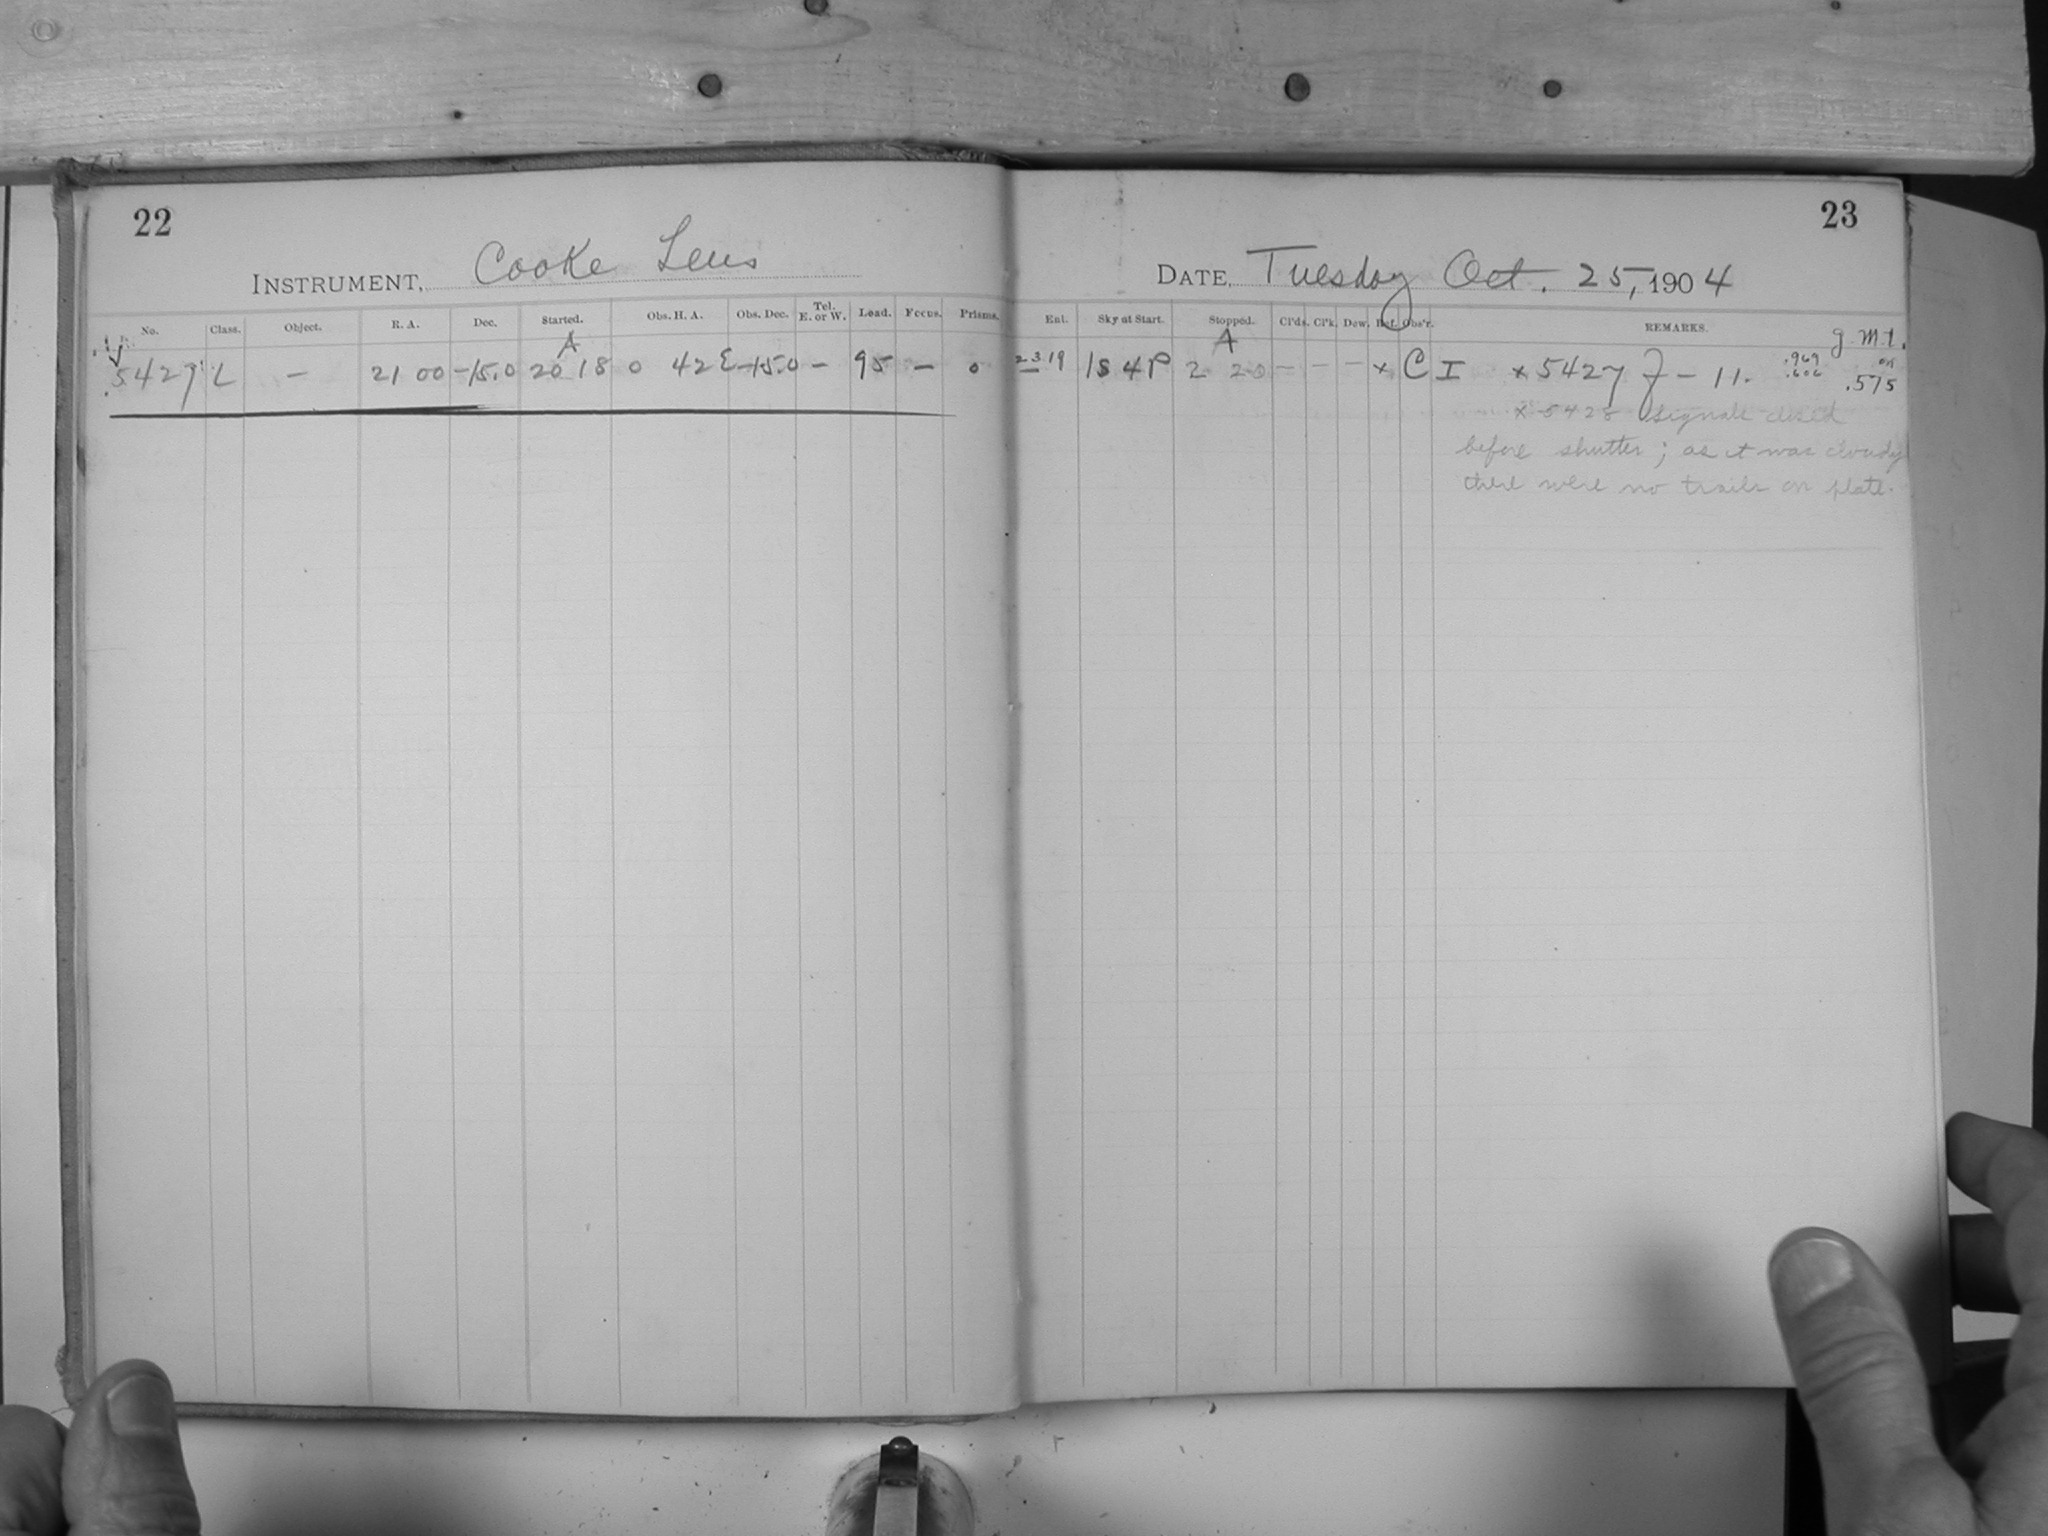 22
INSTRUMENT, Cooke Lens
No. Class. Object. R. A. Dec. Started. Obs. H. A. Obs. Dec. Tel. E. or W. Load. Focus. Prisms.
A
5427 L — 21 00 -15.0 20 18 0 42 E -15.0 — 95 — 0
23
DATE, Tuesday Oct. 25, 1904
Ent. Sky at Start. Stopped. Cl'ds. Cl'k. Dew. Ref. Obs'r. REMARKS.
A g.m.t.
23 19 1s 4P 2 20 — — — x C I x 5427 J — 11. .969 .606 on .575
x 5428 Signals closed
before shutter; as it was cloudy
there were no trails on plate.